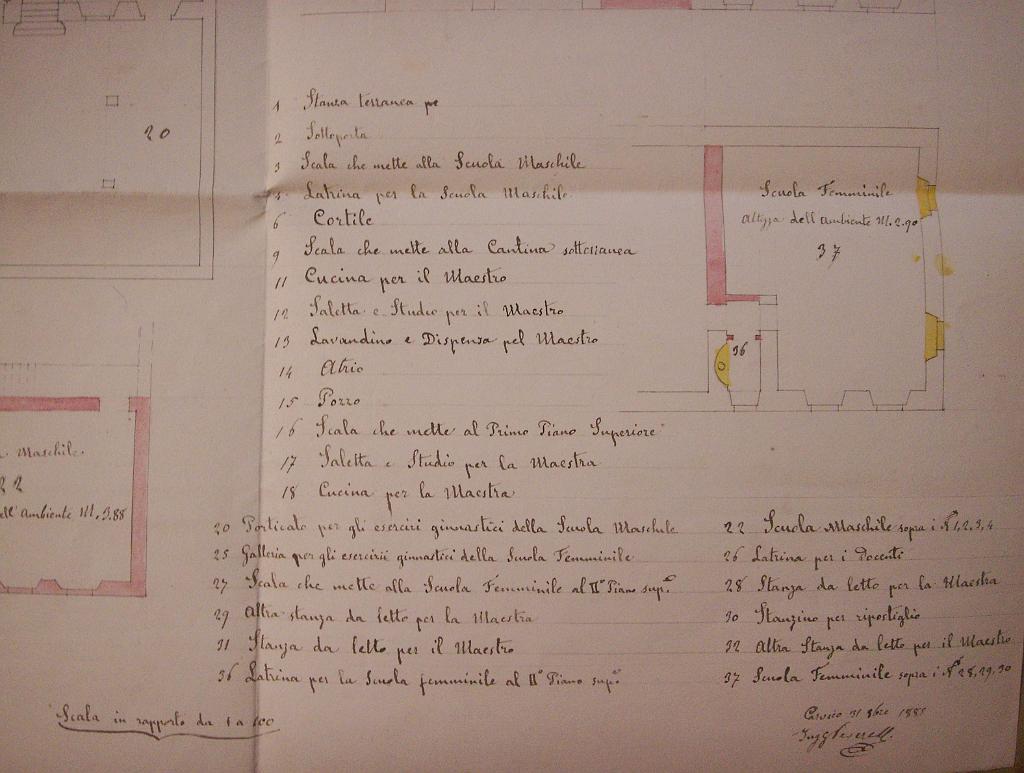 20
1 Stanza terranea pe
2 Sottoporta
3 Scala che mette alla Scuola Maschile
Latrina per la Scuola Maschile
6 Cortile
9 Scala che mette alla Cantina sotteranea
11 Cucina per il Maestro
12 Saletta e Studio per il Maestro
13 Lavandino e Dispensa pel Maestro
14 Atrio
15 Pozzo
16 Scala che mette al Primo Piano Superiore
17 Saletta e Studio per la Maestra
18 Cucina per la Maestra
20 Porticato per gli esercizi ginnastici della Scuola Maschile
25 Galleria per gli esercizii ginnastici della Scuola Femminile
27 Scala che mette alla Scuola Femminile al II° Piano sup.e
29 Altra stanza da letto per la Maestra
31 Stanza da letto per il Maestro
36 Latrina per la Scuola femminile al II° Piano sup.e
22 Scuola Maschile sopra i N.i 1, 2, 3, 4
26 Latrina per i Docenti
28 Stanza da letto per la Maestra
30 Stanzino per ripostiglio
32 Altra Stanza da letto per il Maestro
37 Scuola Femminile sopra i N.i 28, 29, 30
Scuola Femminile
Altezza dell'ambiente M. 2.90
37
36
a Maschile.
22
dell'ambiente M. 3.88
Scala in rapporto da 1 a 100
31 8bre 188
Ing